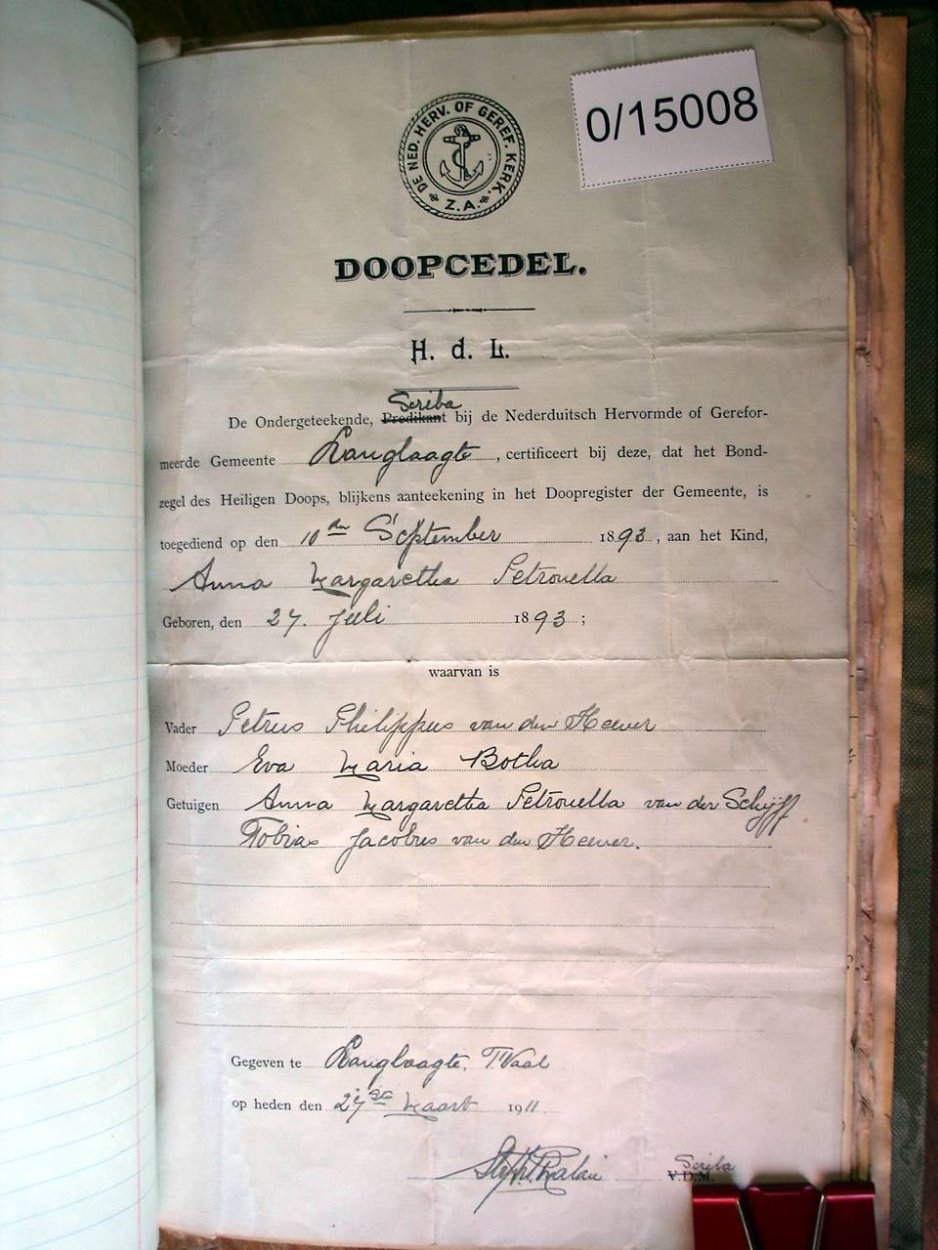 0/15008
DE NED. HERV. OF GEREF. KERK. Z.A.
DOOPCEDEL.
H. d. L.
Scriba
De Ondergeteekende, Predikant bij de Nederduitsch Hervormde of Gerefor-
meerde Gemeente Langlaagte, certificeert bij deze, dat het Bond-
zegel des Heiligen Doops, blijkens aanteekening in het Doopregister der Gemeente, is
toegediend op den 10den September 1893, aan het Kind,
Anna Margaretha Petronella
Geboren, den 27. Juli 1893;
waarvan is
Vader Petrus Philippus van den Heever
Moeder Eva Maria Botha
Getuigen Anna Margaretha Petronella van der Schijff
Tobias Jacobus van den Heever.
Gegeven te Langlaagte, T.Vaal
op heden den 27ste Maart 1911
Scriba
V.D.M.